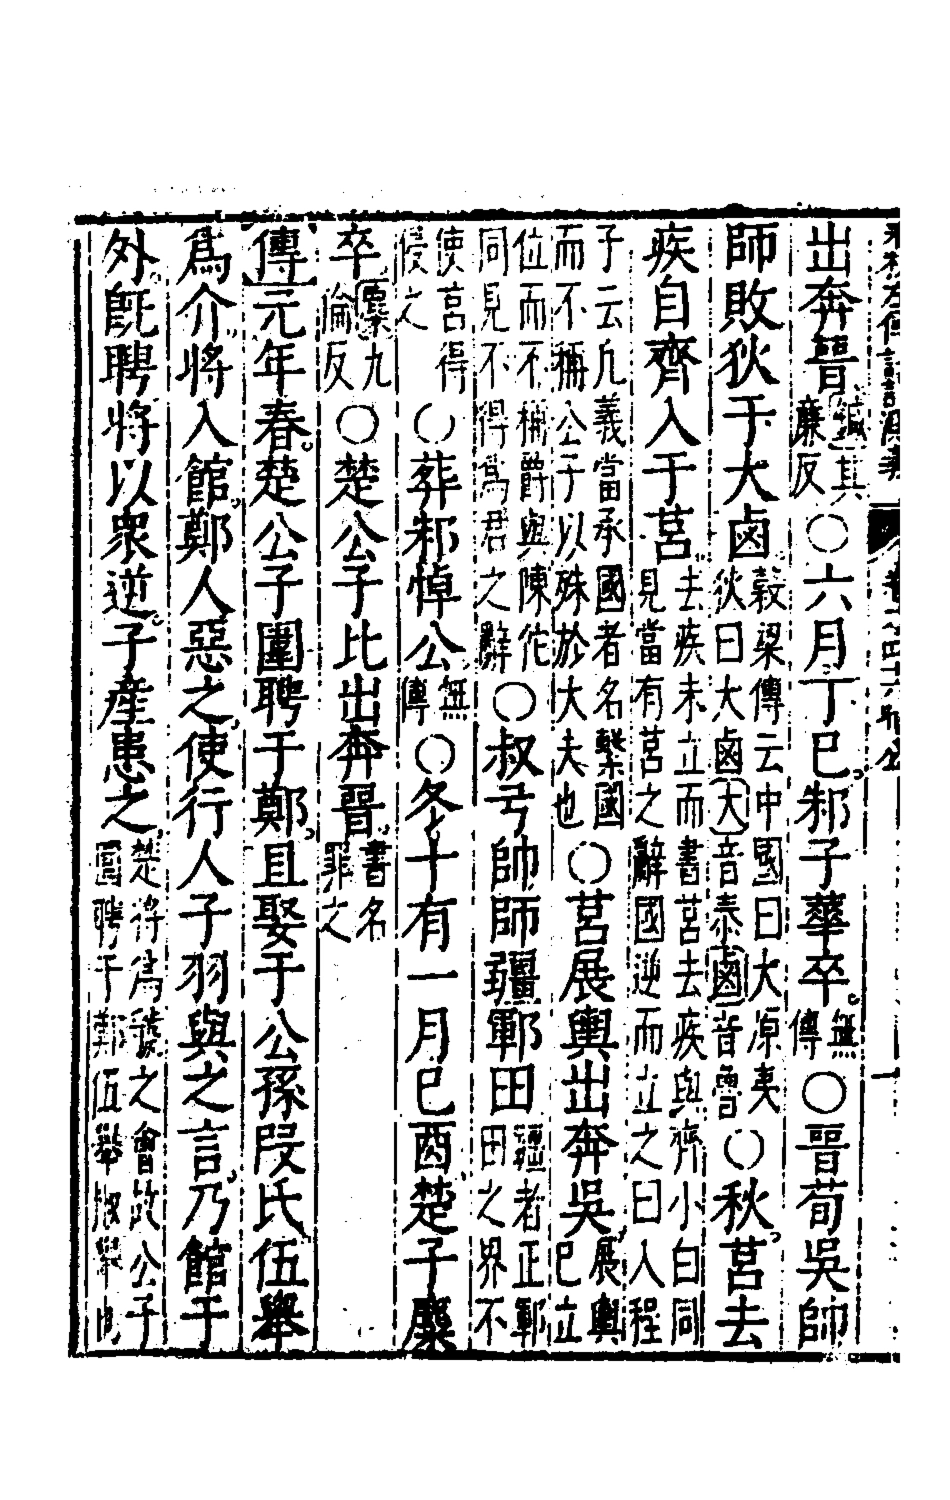 春秋左傳註評測義 卷之四十六昭公 一
出奔晉鍼其廉反○六月丁巳邾子華卒無傳○晉荀吳帥
師敗狄于大鹵穀梁傳云中國曰大原夷狄曰大鹵大音泰鹵音魯○秋莒去
疾自齊入于莒去疾未立而書莒去疾與齊小白同見當有莒之辭國逆而立之曰入程
子云凡義當承國者名繫國而不稱公子以殊於大夫也○莒展輿出奔吳展輿已立
位而不稱爵與陳佗同見不得爲君之辭○叔弓帥師疆鄆田疆者正鄆田之界不
使莒得侵之○葬邾悼公無傳○冬十有一月己酉楚子麇
卒麇九倫反○楚公子比出奔晉書名罪之
傳元年春楚公子圍聘于鄭且娶于公孫段氏伍舉
爲介將入館鄭人惡之使行人子羽與之言乃館于
外旣聘將以衆逆子產患之楚將爲虢之會故公子圍聘于鄭伍舉椒舉也